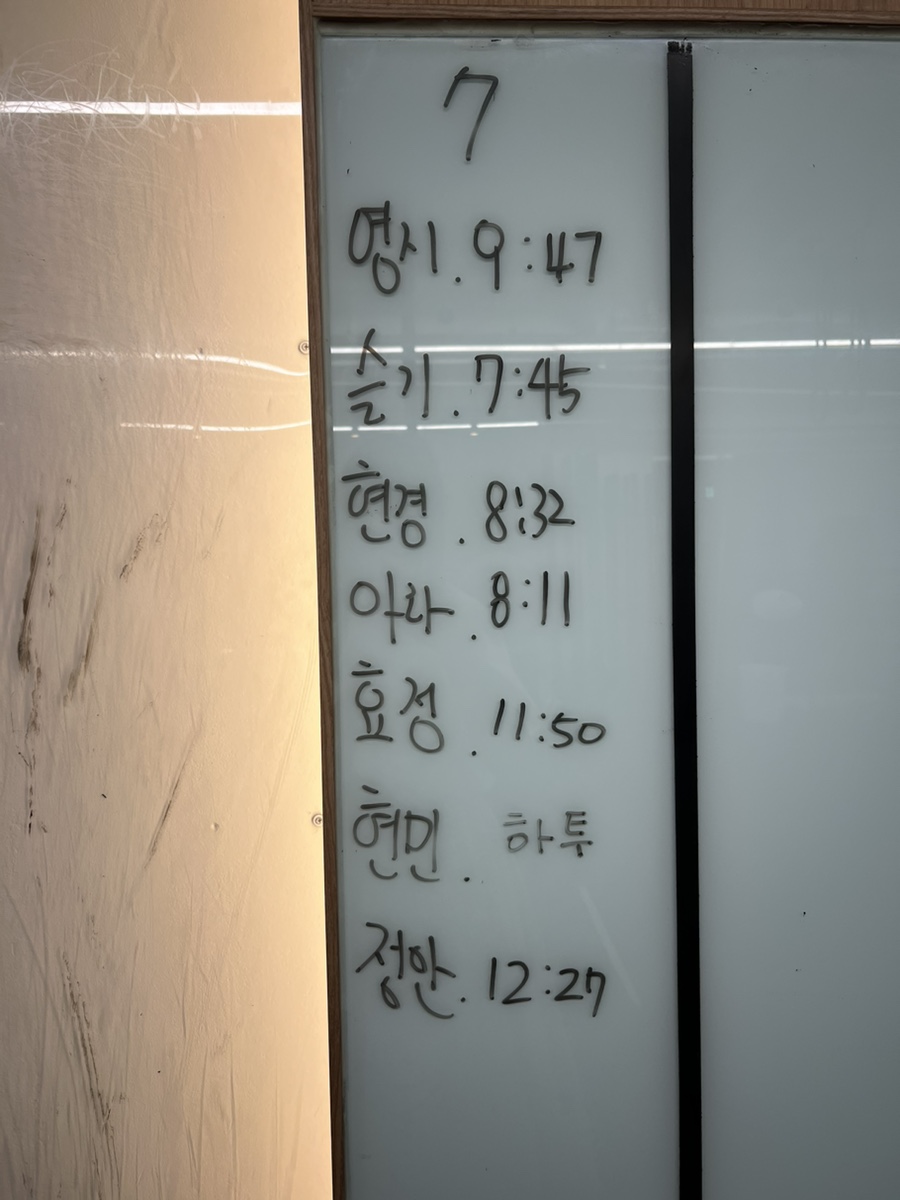 7
영시. 9:47
슬기. 7:45
현경. 8:32
아라. 8:11
효정. 11:50
현민. 하투
정안. 12:27